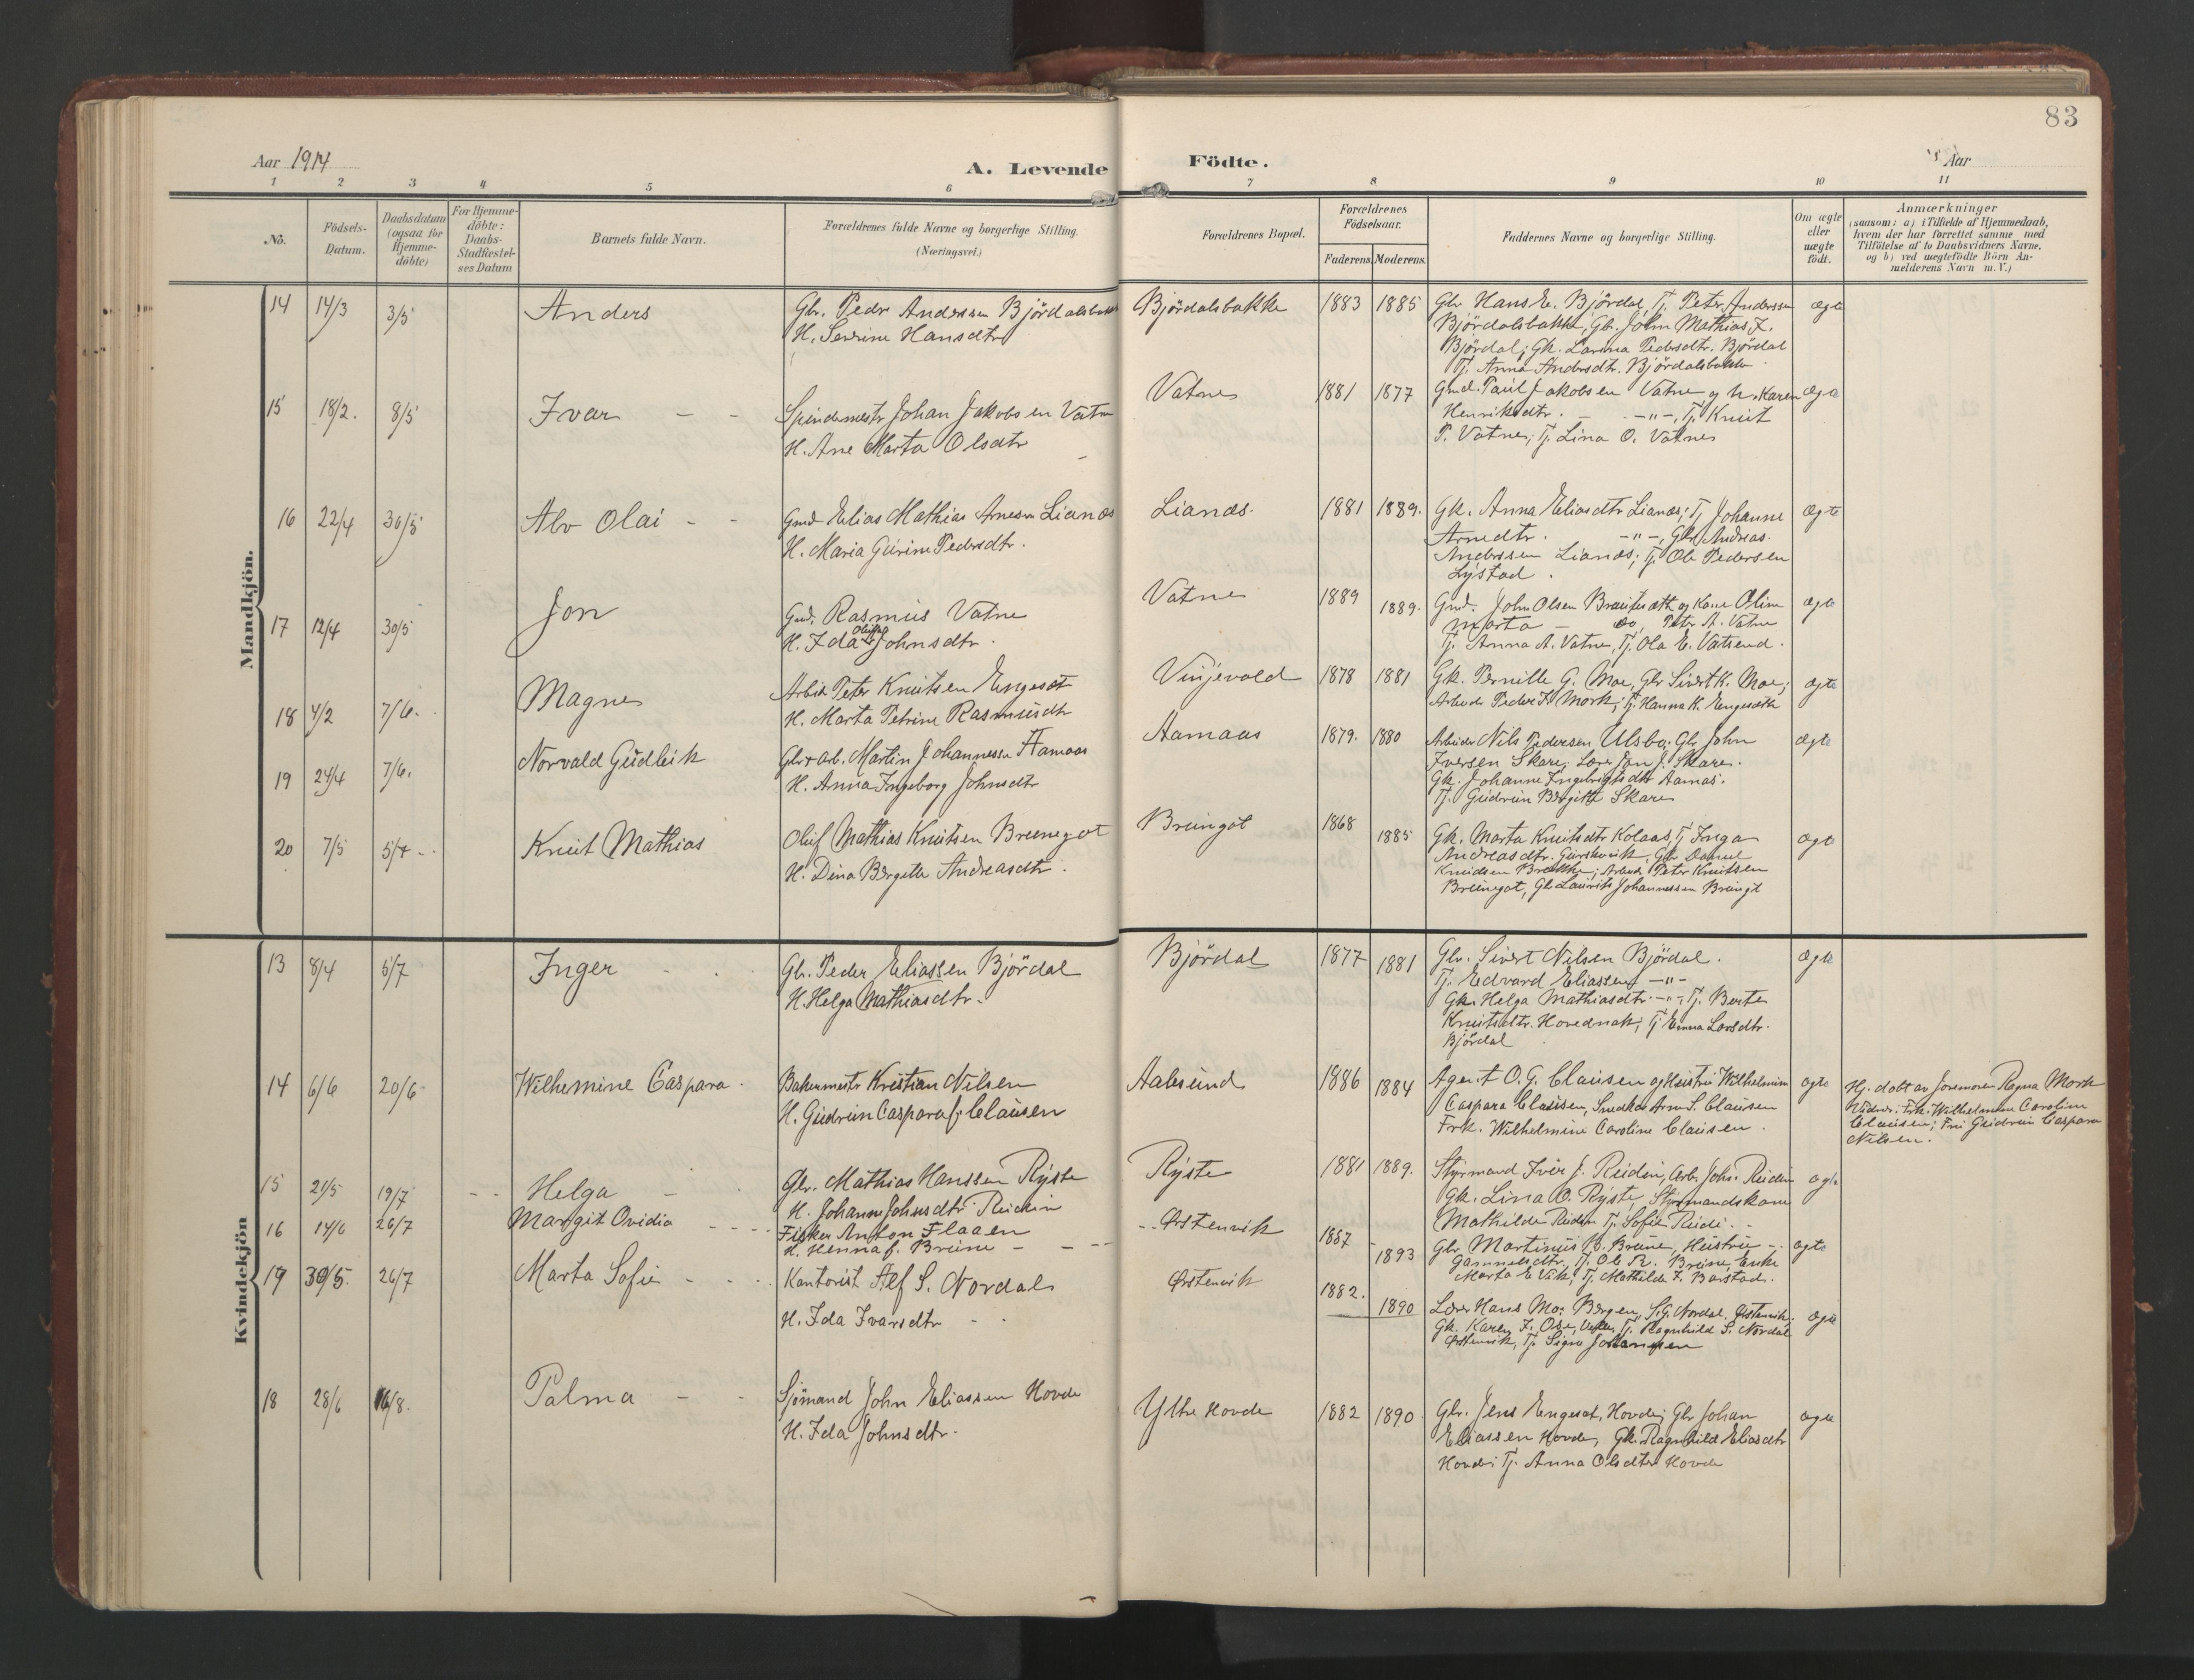 83
Aar 1914
A. Levende Födte.
Aar
1 2 3 4 5 6 7 8 9 10 11
No.
Födsels-
Datum.
Daabsdatum
(ogsaa for
Hjemme-
döbte)
For Hjemme-
döbte:
Daabs-
Stadfæstel-
ses Datum
Barnets fulde Navn.
Forældrenes fulde Navne og borgerlige Stilling.
(Næringsvei.)
Forældrenes Bopæl.
Forældrenes
Födselsaar.
Faderens. Moderens.
Faddernes Navne og borgerlige Stilling.
Om ægte
eller
uægte
födt.
Anmærkninger
(saasom: a) i Tilfælde af Hjemmedaab,
hvem der har forrettet samme med
Tilföielse af to Daabsvidners Navne,
og b) ved uægtefödte Börn An-
melderens Navn m. V.)
Mandkjön.
14 14/3 3/5 Anders
Gbr. Peder Anderssen Björdalsbakk
H. Serine Hansdtr
Björdalsbakke 1883 1885
Gbr Hans E. Björdal, Tj. Peter Anderssen
Björdalsbakke, Gbr. John Mathias J.
Björdal; Gk. Larina Pedersdtr. Björdal
Tj. Anna Andersdtr. Björdalsbakke
ægte
15 18/2. 8/5 Ivar - -
Spindemestr Johan Jakobsen Vatne
H. Ane Marta Olsdtr
Vatne 1881 1877
Gmd. Paul Jakobsen Vatne og h. Karen
Henriksdtr. - -"-, Tj. Knut
P. Vatne; Tj. Lina O. Vatne
ægte
16 22/4 30/5 Alv Olai - -
Gmd Elias Mathias Arnesen Lianæs
H. Maria Gurine Pedersdtr.
Lianæs. 1881 1889.
Gk. Anna Eliasdtr Lianæs; Tj Johanne
Arnedtr. -"-, Gbr Andreas
Anderssen Lianæs; Tj. Ole Pedersen
Lystad.
ægte
17 12/4 30/5 Jon
Gmd. Rasmus Vatne
H. Ida Johnsdtr.
Vatne 1889 1889.
Gmd. John Olsen Brautesæth og Kone Oline
Marta - do, Peter A. Vatne
Tj. Anna A. Vatne, Tj. Ola E. Vatsend.
ægte
18 4/2 7/6. Magne
Arbeid Peter Knutsen Engeset
H. Marta Petrine Rasmusdtr
Vinjevold 1878 1881
Gk. Pernille G. Moe, Gbr Sivert K. Moe;
Arbeider Peder K Mork; Tj. Hanna K. Engesæth
ægte
19 24/4 7/6. Norvald Gudleik
Gbr + arb. Martin Johannesse Aamaas
H. Anna Ingeborg Johnsdtr
Aamaas 1879. 1880
Arbeider Nils Pedersen Ulsbø; Gbr John
Iversen Skare; Lærer Jon J. Skare.
Gk. Johanne Ingebrigtsdtr Aamas.
Tj. Gudrun Bergitte Skare
ægte
20 7/5 5/7 - . Knut Mathias
Oluf Mathias Knutsen Brunegot
H. Dina Bergitte Andreasdtr.
Brungot 1868 1885
Gk. Marta Knutsdtr Kolaas, Tj Inga
Andreasdtr. Gurskevik, Gbr Daniel
Knudsen Brække; Arbeid. Peter Knutsen
Brungot, Gbr Laurits Johannessen Brungt
ægte
Kvindekjön
13 8/4 5/7 Inger
Gbr. Peder Eliassen Björdal
H. Helga Mathiasdtr.
Björdal 1877 1881
Gbr. Sivert Nilsen Björdal.
Tj. Edvard Eliassen -"-
Gk. Helga Mathiasdtr -"-, Tj. Berte
Knutsdtr. Hovednak; Tj Emma Larsdtr.
Björdal
ægte
14 6/6 20/6 Wilhemine Caspara.
Bakermestr Kristian Nilsen
H. Gudrun Caspara f. Clausen
Aalesund 1886 1884
Agent O. G. Clausen og Hustru Wilhelmine
Caspara Clausen, Snedker Arne S. Clausen
Frk. Wilhelmine Caroline Clausen.
ægte
Hj. döbt av Jormoren Ragna Mork
Vidner: Frk. Wilhelmine Caroline
Clausen; Fru Gudrun Caspara
Nilsen.
15 21/5 19/7 Helga -
Gbr. Mathias Hanssen Ryste
H. Johanne Johnsdtr Reidin
Ryste 1881 1889.
Styrmand Iver J. Reidin, Arb. Johs. Reidin
Gk. Lina O. Ryste, Styrmandskone
Mathilde Reidin Tj. Sofie Reidi.
ægte
16 14/6 26/7 Margit Ovidia
Fisker Anton Flaaen
H. Henna f. Brune -
Ørstenvik 1887 1893
Gbr Martinus B. Brune, Hustru -.
Gammelsdtr, Tj. Ole R. Brune, Enke
Marta E Vik, Tj. Mathilde J. Barstad.
ægte
17 30/5. 26/7 Marta Sofie
Kantorist Alf S. Nordal
H. Ida Ivarsdtr
Ørstenvik 1882. 1890
Lærer Hans Mo: Bergen, S. G. Nordal Ørstenvik.
Gk. Karen J. Ose, Tj. Ragnhild S. Nordal
Ørstenvik, Tj. Signe
ægte
18 28/6 16/8. Palma - -
Sjömand John Eliassen Hovde
H. Ida Johnsdtr.
Ytre Hovde 1882 1890
Gbr. Jens Engeset, Hovde; Gbr Johan
Eliassen Hovde, Gk. Ragnhild Eliasdtr
Hovde; Tj. Anna Olsdtr Hovde
ægte